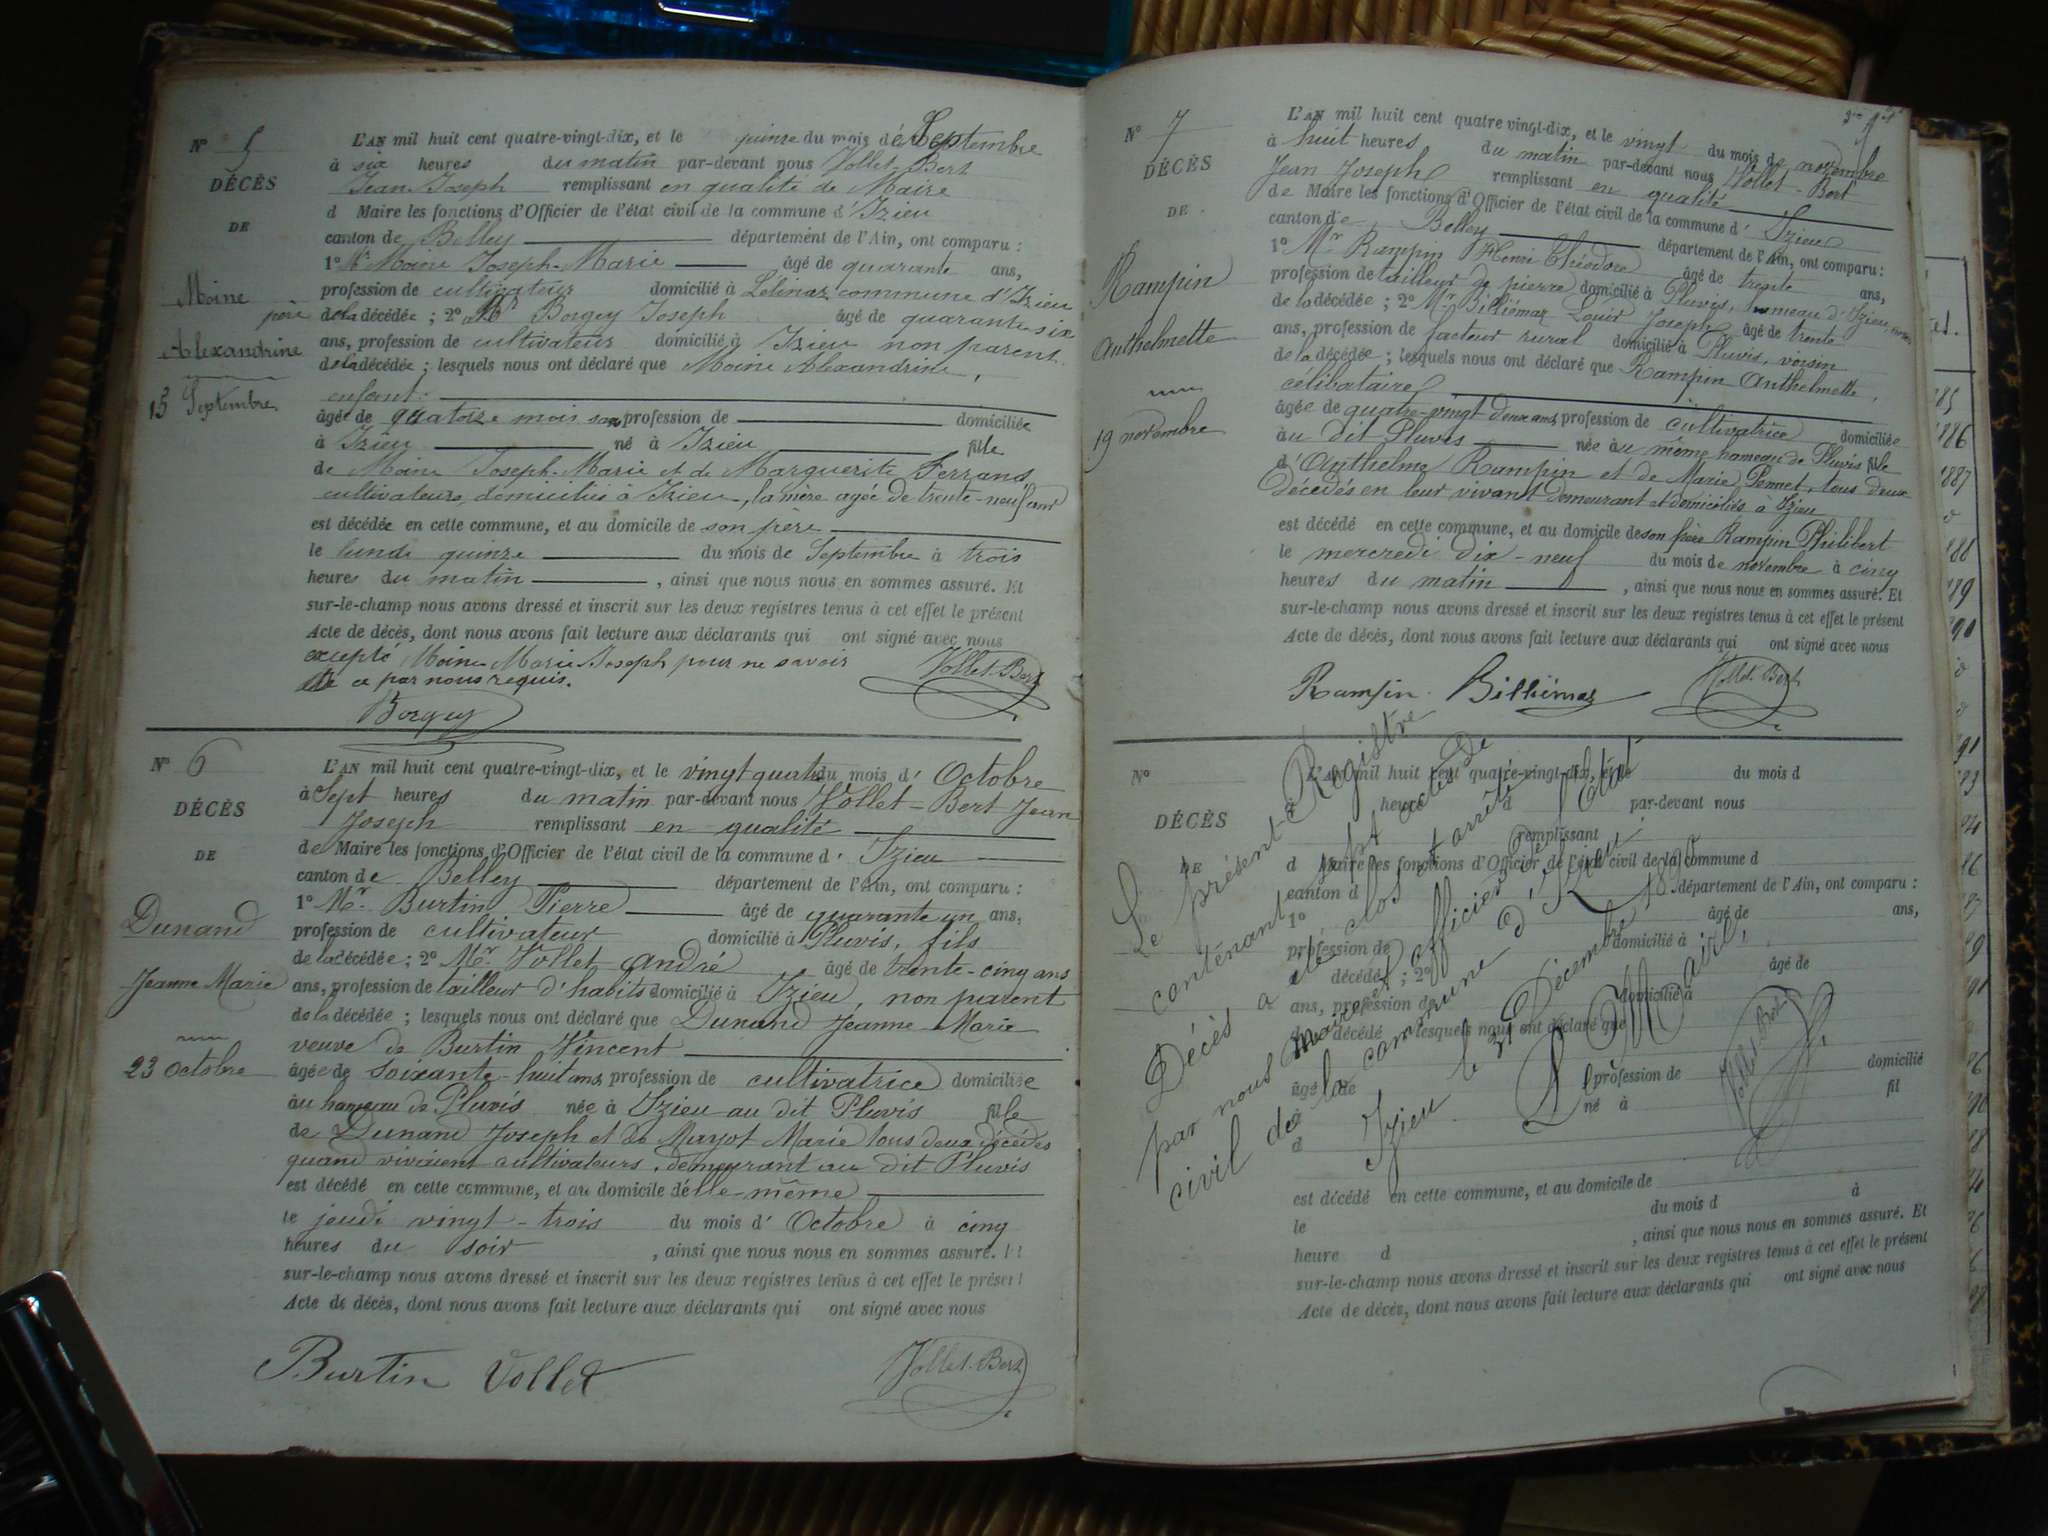 N° 5
DÉCÈS
DE
Moine
Alexandrine
15 Septembre
L'AN mil huit cent quatre-vingt-dix, et le quinze du mois de Septembre
à six heures du matin par-devant nous Vollet-Bert
Jean Joseph remplissant en qualité de Maire
d Maire les fonctions d'Officier de l'état civil de la commune d'Izieu
canton de Belley département de l'Ain, ont comparu :
1° Mr Moine Joseph-Marie âgé de quarante ans,
profession de cultivateur domicilié à Lélinaz commune d'Izieu
père de la décédée ; 2° Mr Borgey Joseph âgé de quarante six
ans, profession de cultivateur domicilié à Izieu non parent
de la décédée ; lesquels nous ont déclaré que Moine Alexandrine,
enfant
âgée de quatorze mois sans profession de domiciliée
à Izieu né à Izieu fille
de Moine Joseph-Marie et de Marguerite Ferrand
cultivateurs, domiciliés à Izieu, la mère agée de trente-neuf ans
est décédée en cette commune, et au domicile de son père
le lundi quinze du mois de Septembre à trois
heures du matin, ainsi que nous nous en sommes assuré. Et
sur-le-champ nous avons dressé et inscrit sur les deux registres tenus à cet effet le présent
Acte de décès, dont nous avons fait lecture aux déclarants qui ont signé avec nous
excepté Moine Marie Joseph pour ne savoir
de ce par nous requis.
Vollet-Bert
Borgey
N° 6
DÉCÈS
DE
Dunand
Jeanne Marie
23 octobre
L'AN mil huit cent quatre-vingt-dix, et le vingt quatre du mois d' Octobre
à Sept heures du matin par-devant nous Vollet-Bert Jean
Joseph remplissant en qualité
de Maire les fonctions d'Officier de l'état civil de la commune d' Izieu
canton de Belley département de l'Ain, ont comparu :
1° Mr. Burtin Pierre âgé de quarante un ans,
profession de cultivateur domicilié à Pluvis, fils
de la décédée ; 2° Mr. Vollet André âgé de trente-cinq ans
ans, profession de tailleur d'habits domicilié à Izieu, non parent
de la décédée ; lesquels nous ont déclaré que Dunand Jeanne Marie
veuve de Burtin Vincent
âgée de soixante-huit ans profession de cultivatrice domiciliée
au hameau de Pluvis née à Izieu au dit Pluvis fille
de Dunand Joseph et de Mayot Marie tous deux décédés
quand vivaient cultivateurs, demeurant au dit Pluvis
est décédé en cette commune, et au domicile d'elle-même
le jeudi vingt-trois du mois d' Octobre à cinq
heures du soir, ainsi que nous nous en sommes assuré. Et
sur-le-champ nous avons dressé et inscrit sur les deux registres tenus à cet effet le présent
Acte de décès, dont nous avons fait lecture aux déclarants qui ont signé avec nous
Burtin Vollet Vollet-Bert
N° 7
DÉCÈS
DE
Rampin
Anthelmette
19 novembre
L'AN mil huit cent quatre vingt-dix, et le vingt du mois de novembre
à huit heures du matin par-devant nous Vollet-Bert
Jean Joseph remplissant en qualité
de Maire les fonctions d'Officier de l'état civil de la commune d' Izieu
canton de Belley département de l'Ain, ont comparu :
1° Mr Rampin Henri Théodore âgé de trente ans,
profession de tailleur de pierre domicilié à Pluvis, hameau d'Izieu, neveu
de la décédée ; 2° Mr Billiémaz Louis Joseph âgé de trente
ans, profession de facteur rural domicilié à Pluvis, voisin
de la décédée ; lesquels nous ont déclaré que Rampin Anthelmette,
célibataire
âgée de quatre-vingt deux ans profession de cultivatrice domiciliée
au dit Pluvis née au même hameau de Pluvis fille
d'Anthelme Rampin et de Marie Pennet, tous deux
décédés en leur vivant demeurant et domiciliés à Izieu
est décédé en cette commune, et au domicile de son frère Rampin Philibert
le mercredi dix-neuf du mois de novembre à cinq
heures du matin, ainsi que nous nous en sommes assuré. Et
sur-le-champ nous avons dressé et inscrit sur les deux registres tenus à cet effet le présent
Acte de décès, dont nous avons fait lecture aux déclarants qui ont signé avec nous
Rampin. Billiémaz Vollet-Bert
N°
DÉCÈS
DE
L'AN mil huit cent quatre-vingt-dix, et le du mois d
à heure d par-devant nous
remplissant
d Maire les fonctions d'Officier de l'état civil de la commune d
canton d département de l'Ain, ont comparu :
1° âgé de ans,
profession de domicilié à
décédé ; 2° âgé de
ans, profession de domicilié à
d décédé lesquels nous ont déclaré que
âgé de profession de domicilié
à né à fil
d
est décédé en cette commune, et au domicile de
le du mois d à
heure d, ainsi que nous nous en sommes assuré. Et
sur-le-champ nous avons dressé et inscrit sur les deux registres tenus à cet effet le présent
Acte de décès, dont nous avons fait lecture aux déclarants qui ont signé avec nous
Le présent Registre
contenant sept actes de
Décès a été clos et arrêté
par nous Maire et officier de l'Etat
civil de la commune d'Izieu.
Izieu le 31 Décembre 1890
Le Maire,
Vollet-Bert